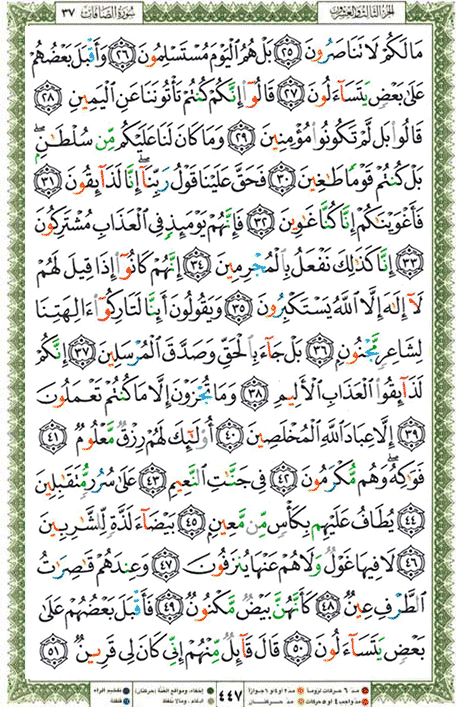 الجزء الثالث والعشرون
سورة الصافات ٣٧
مَا لَكُمْ لَا تَنَاصَرُونَ ٢٥ بَلْ هُمُ الْيَوْمَ مُسْتَسْلِمُونَ ٢٦ وَأَقْبَلَ بَعْضُهُمْ
عَلَىٰ بَعْضٍ يَتَسَاءَلُونَ ٢٧ قَالُوا إِنَّكُمْ كُنتُمْ تَأْتُونَنَا عَنِ الْيَمِينِ ٢٨
قَالُوا بَل لَّمْ تَكُونُوا مُؤْمِنِينَ ٢٩ وَمَا كَانَ لَنَا عَلَيْكُم مِّن سُلْطَانٍ ۖ
بَلْ كُنتُمْ قَوْمًا طَاغِينَ ٣٠ فَحَقَّ عَلَيْنَا قَوْلُ رَبِّنَا ۖ إِنَّا لَذَائِقُونَ ٣١
فَأَغْوَيْنَاكُمْ إِنَّا كُنَّا غَاوِينَ ٣٢ فَإِنَّهُمْ يَوْمَئِذٍ فِي الْعَذَابِ مُشْتَرِكُونَ
٣٣ إِنَّا كَذَٰلِكَ نَفْعَلُ بِالْمُجْرِمِينَ ٣٤ إِنَّهُمْ كَانُوا إِذَا قِيلَ لَهُمْ
لَا إِلَٰهَ إِلَّا اللَّهُ يَسْتَكْبِرُونَ ٣٥ وَيَقُولُونَ أَئِنَّا لَتَارِكُو آلِهَتِنَا
لِشَاعِرٍ مَّجْنُونٍ ٣٦ بَلْ جَاءَ بِالْحَقِّ وَصَدَّقَ الْمُرْسَلِينَ ٣٧ إِنَّكُمْ
لَذَائِقُو الْعَذَابِ الْأَلِيمِ ٣٨ وَمَا تُجْزَوْنَ إِلَّا مَا كُنتُمْ تَعْمَلُونَ
٣٩ إِلَّا عِبَادَ اللَّهِ الْمُخْلَصِينَ ٤٠ أُولَٰئِكَ لَهُمْ رِزْقٌ مَّعْلُومٌ ٤١
فَوَاكِهُ ۖ وَهُم مُّكْرَمُونَ ٤٢ فِي جَنَّاتِ النَّعِيمِ ٤٣ عَلَىٰ سُرُرٍ مُّتَقَابِلِينَ
٤٤ يُطَافُ عَلَيْهِم بِكَأْسٍ مِّن مَّعِينٍ ٤٥ بَيْضَاءَ لَذَّةٍ لِّلشَّارِبِينَ
٤٦ لَا فِيهَا غَوْلٌ وَلَا هُمْ عَنْهَا يُنزَفُونَ ٤٧ وَعِندَهُمْ قَاصِرَاتُ
الطَّرْفِ عِينٌ ٤٨ كَأَنَّهُنَّ بَيْضٌ مَّكْنُونٌ ٤٩ فَأَقْبَلَ بَعْضُهُمْ عَلَىٰ
بَعْضٍ يَتَسَاءَلُونَ ٥٠ قَالَ قَائِلٌ مِّنْهُمْ إِنِّي كَانَ لِي قَرِينٌ ٥١
مد ٦ حركات لزوماً مد ٢ أو ٤ أو ٦ جوازاً
مد واجب ٤ أو ٥ حركات مد حركتان
٤٤٧
إخفاء، ومواقع الغنة (حركتان) تفخيم الراء
إدغام، وما لا يلفظ قلقلة